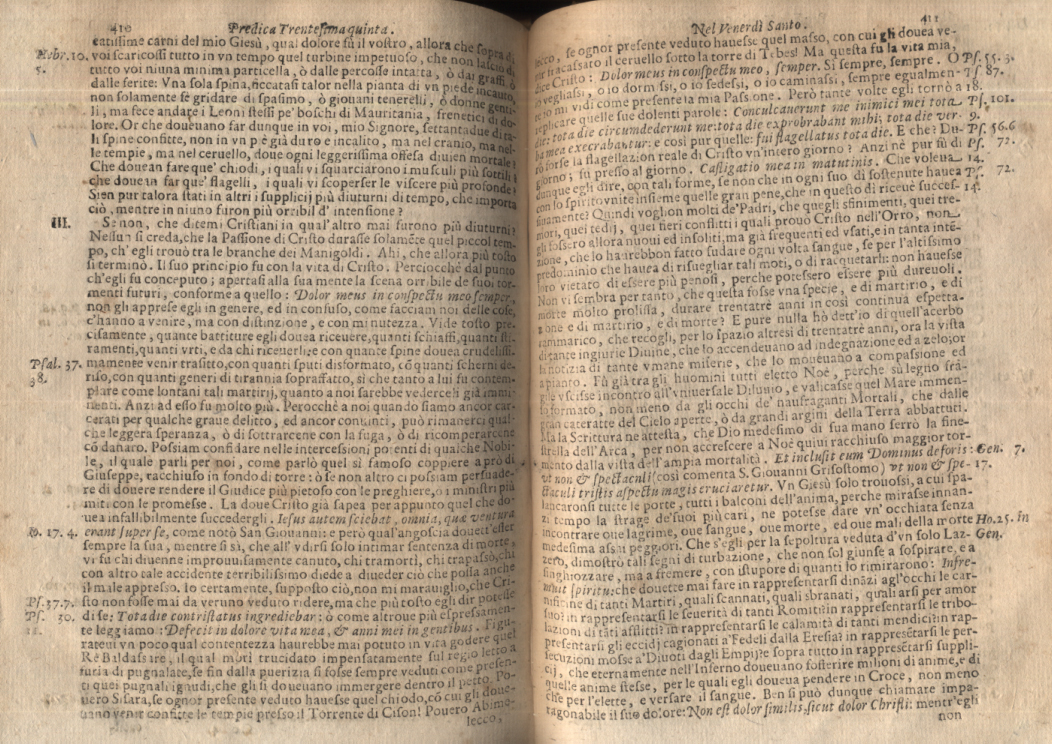 410 Predica Trentesima quinta.
catissime carni del mio Giesù, qual dolore fù il vostro, allora che sopra di
Hebr. 10. voi scaricossi tutto in vn tempo quel turbine impetuoso, che non lasciò di
5. tutto voi niuna minima particella, ò dalle percosse intatta, ò dai graffi, ò
dalle ferite: Vna sola spina, ficcatasi talor nella pianta di vn piede incauto,
non solamente fe gridare di spasimo, ò giouani tenerelli, ò donne genti-
li, ma fece andare i Leoni stessi pe' boschi di Mauritania, frenetici di do-
lore. Or che doueuano far dunque in voi, mio Signore, settantadue di ta-
li spine confitte, non in vn piè già duro e incalito, ma nel cranio, ma nel-
le tempie, ma nel ceruello, doue ogni leggerissima offesa diuien mortale?
Che douean fare que' chiodi, i quali vi squarciarono i musculi più sottili?
che douean far que' flagelli, i quali vi scoperser le viscere più profonde?
Sien pur talora stati in altri i supplicij più diuturni di tempo, che importa
ciò, mentre in niuno furon più orribil d' intensione?
III. Se non, che ditemi Cristiani in qual'altro mai furono più diuturni?
Nessun si creda, che la Passione di Cristo durasse solamēte quel piccol tem-
po, ch' egli trouò tra le branche dei Manigoldi. Ahi, che allora più tosto
si terminò. Il suo principio fu con la vita di Cristo. Perciocchè dal punto
ch'egli fu conceputo; apertasi alla sua mente la scena orribile de suoi tor-
menti futuri, conforme a quello: Dolor meus in conspectu meo semper,
non gli apprese egli in genere, ed in confuso, come facciam noi delle cose,
c'hanno a venire, ma con distinzione, e con minutezza. Vide tosto pre-
cisamente, quante battiture egli douea riceuere, quanti schiaffi, quanti sti-
ramenti, quanti vrti, e da chi riceuerli: e con quante spine douea crudelissi-
Psal. 37. mamente venir trafitto, con quanti sputi disformato, cō quanti scherni de-
38. riso, con quanti generi di tirannia sopraffatto, sì che tanto a lui fu contem-
plare come lontani tali martirij, quanto a noi sarebbe vederceli già immi-
nenti. Anzi ad esso fu molto più. Perocchè a noi quando siamo ancor car-
cerati per qualche graue delitto, ed ancor conuinti, può rimanerci qual-
che leggera speranza, ò di sottrarcene con la fuga, ò di ricomperarcene
cō danaro. Possiam confidare nelle intercessioni potenti di qualche Nobi-
le, il quale parli per noi, come parlò quel sì famoso coppiere a prò di
Giuseppe, racchiuso in fondo di torre: ò se non altro ci possiam persuade-
re di douere rendere il Giudice più pietoso con le preghiere, o i ministri più
miti con le promesse. La doue Cristo già sapea per appunto quel che do-
uea infallibilmente succedergli. Iesus autem sciebat, omnia, quæ ventura
Io. 17. 4. erant super se, come notò San Giouanni: e però qual'angoscia douett'esser
sempre la sua, mentre si sì, che all' vdirsi solo intimar sentenza di morte,
vi fu chi diuenne improuuisamente canuto, chi tramortì, chi trapassò, chi
con altro tale accidente terribilissimo diede a diueder ciò che possa anche
il male appreso. Io certamente, supposto ciò, non mi marauiglio, che Cri-
Ps. 37.7. sto non fosse mai da veruno veduto ridere, ma che più tosto egli dir potesse
Ps. 30. di se; Tota die contristatus ingrediebar: ò come altroue più espressamen-
11. te leggiamo: Defecit in dolore vita mea, & anni mei in gentibus. Figu-
rateui vn poco qual contentezza haurebbe mai potuto in vita godere quel
Rè Baldassare, il qual morì trucidato impensatamente sul regio letto a
furia di pugnalate, se fin dalla puerizia si fosse sempre veduti come presen-
ti quei pugnali ignudi, che gli si doueuano immergere dentro il petto. Po-
uero Sisara, se ognor presente veduto hauesse quel chiodo, cō cui gli doue-
uano venir confitte le tempie presso il Torrente di Cison! Pouero Abimo-
lecco,
Nel Venerdì Santo. 411
se ognor presente veduto hauesse quel masso, con cui gli douea ve-
nir fracassato il ceruello sotto la torre di Tebes! Ma questa fu la vita mia,
dice Cristo: Dolor meus in conspectu meo, semper. Sì sempre, sempre. O Ps. 55. 3.
vegliassi, o io dormissi, o io sedessi, o io caminassi, sempre egualmen- Ps. 87.
te io mi vidi come presente la mia Passione. Però tante volte egli tornò a 18.
replicare quelle sue dolenti parole: Conculcauerunt me inimici mei tota Ps. 101.
die: tota die circumdederunt me: tota die exprobrabant mihi; tota die ver- 9.
ba mea execrabantur: e così pur quelle: fui flagellatus tota die. E che? Du- Ps. 56.6
rò forse la flagellazion reale di Cristo vn'intero giorno? Anzi nè pur fù di Ps. 72.
giorno; fù presso al giorno. Castigatio mea in matutinis. Che voleua 14.
dunque egli dire, con tali forme, se non che in ogni suo dì sostenute hauea Ps. 72.
con lo spirito vnite insieme quelle gran pene, che in questo dì riceuè succes- 14.
siuamente? Quindi voglion molti de'Padri, che quegli sfinimenti, quei tre-
mori, quei tedij, quei fieri conflitti i quali prouò Cristo nell'Orto, non
gli fossero allora nuoui ed insoliti, ma già frequenti ed vsati, e in tanta inte-
zione, che lo haurebbon fatto sudare ogni volta sangue, se per l'altissimo
predominio che hauea di risuegliar tali moti, o di racquetarli: non hauesse
loro vietato di essere più penosi, perche potessero essere più dureuoli.
Non vi sembra per tanto, che questa fosse vna specie, e di martirio, e di
morte molto prolissa, durare trentatrè anni in così continua espetta-
zione e di martirio, e di morte? E pure nulla hò dett'io di quell'acerbo
rammarico, che recogli, per lo spazio altresì di trentatrè anni, ora la vista
di tante ingiurie Diuine, che lo accendeuano ad indegnazione ed a zelo; or
la notizia di tante vmane miserie, che lo moueuano a compassione ed
a pianto. Fù già tra gli huomini tutti eletto Noè, perche sù legno fra-
gile vscisse incontro all'vniuersale Diluuio, e valicasse quel Mare immen-
so formato, non meno da gli occhi de' naufraganti Mortali, che dalle
gran cateratte del Cielo aperte, ò da grandi argini della Terra abbattuti.
Ma la Scrittura ne attesta, che Dio medesimo di sua mano serrò la fine-
strella dell'Arca, per non accrescere a Noè quiui racchiuso maggior tor-
mento dalla vista dell'ampia mortalità. Et inclusit eum Dominus deforis: Gen. 7.
vt non & spectaculi (così comenta S. Giouanni Grisostomo) vt non & spe- 17.
ctaculi tristis aspectu magis cruciaretur. Vn Giesù solo trouossi, a cui spa-
lancaronsi tutte le porte, tutti i balconi dell'anima, perche mirasse innan-
zi tempo la strage de'suoi più cari, ne potesse dare vn' occhiata senza
incontrare oue lagrime, oue sangue, oue morte, ed oue mali della morte Ho.25. in
medesima assai peggiori. Che s'egli per la sepoltura veduta d'vn solo Laz- Gen.
zero, dimostrò tali segni di turbazione, che non sol giunse a sospirare, e a
singhiozzare, ma a fremere, con istupore di quanti lo rimirarono: Infre-
muit spiritu: che douette mai fare in rappresentarsi dināzi agl'occhi le car-
nificine di tanti Martiri, quali scannati, quali sbranati, quali arsi per amor
suo? in rappresentarsi le seuerità di tanti Romiti? in rappresentarsi le tribo-
lazioni di tāti afflitti? in rappresentarsi le calamità di tanti mendici? in rap-
presentarsi gli eccidj cagionati a Fedeli dalla Eresia? in rappresētarsi le per-
secuzioni mosse a'Diuoti dagli Empj? e sopra tutto in rappresētarsi suppli-
cij, che eternamente nell'Inferno doueuano sofferire milioni di anime, e di
quelle anime stesse, per le quali egli doueua pendere in Croce, non meno
che per l'elette, e versare il sangue. Ben si può dunque chiamare impa-
ragonabile il suo dolore: Non est dolor similis, sicut dolor Christi: mentr'egli
non